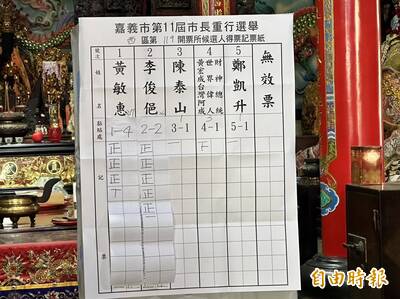 嘉義市第11屆市長重行選舉
區第 開票所候選人得票記票紙
號次 1 2 3 4 5 無效票
姓名 黃敏惠 李俊俋 陳泰山 黃宏成台灣阿成世界偉人財神總統 鄭凱升
黏貼處 1-4 2-2 3-1 4-1 5-1
記票
正 正 一 下 一
正 正
正 正
丅 正
正
正
自由時報